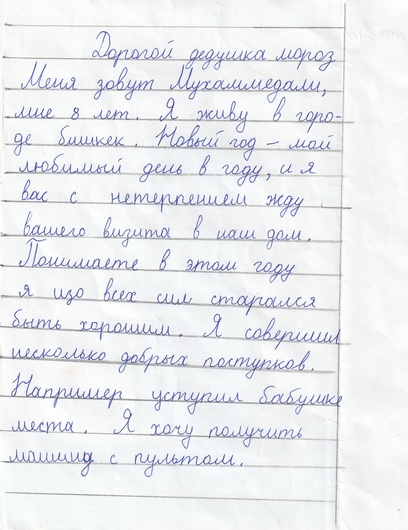 Дорогой дедушка мороз
Меня зовут Мухаммедали,
мне 8 лет. Я живу в горо-
де бишкек. Новый год – мой
любимый день в году, и я
вас с нетерпением жду
вашего визита в наш дом.
Понимаете в этом году
я изо всех сил старался
быть хорошим. Я совершил
несколько добрых поступков.
Например уступил бабушке
места. Я хочу получить
с пультом.